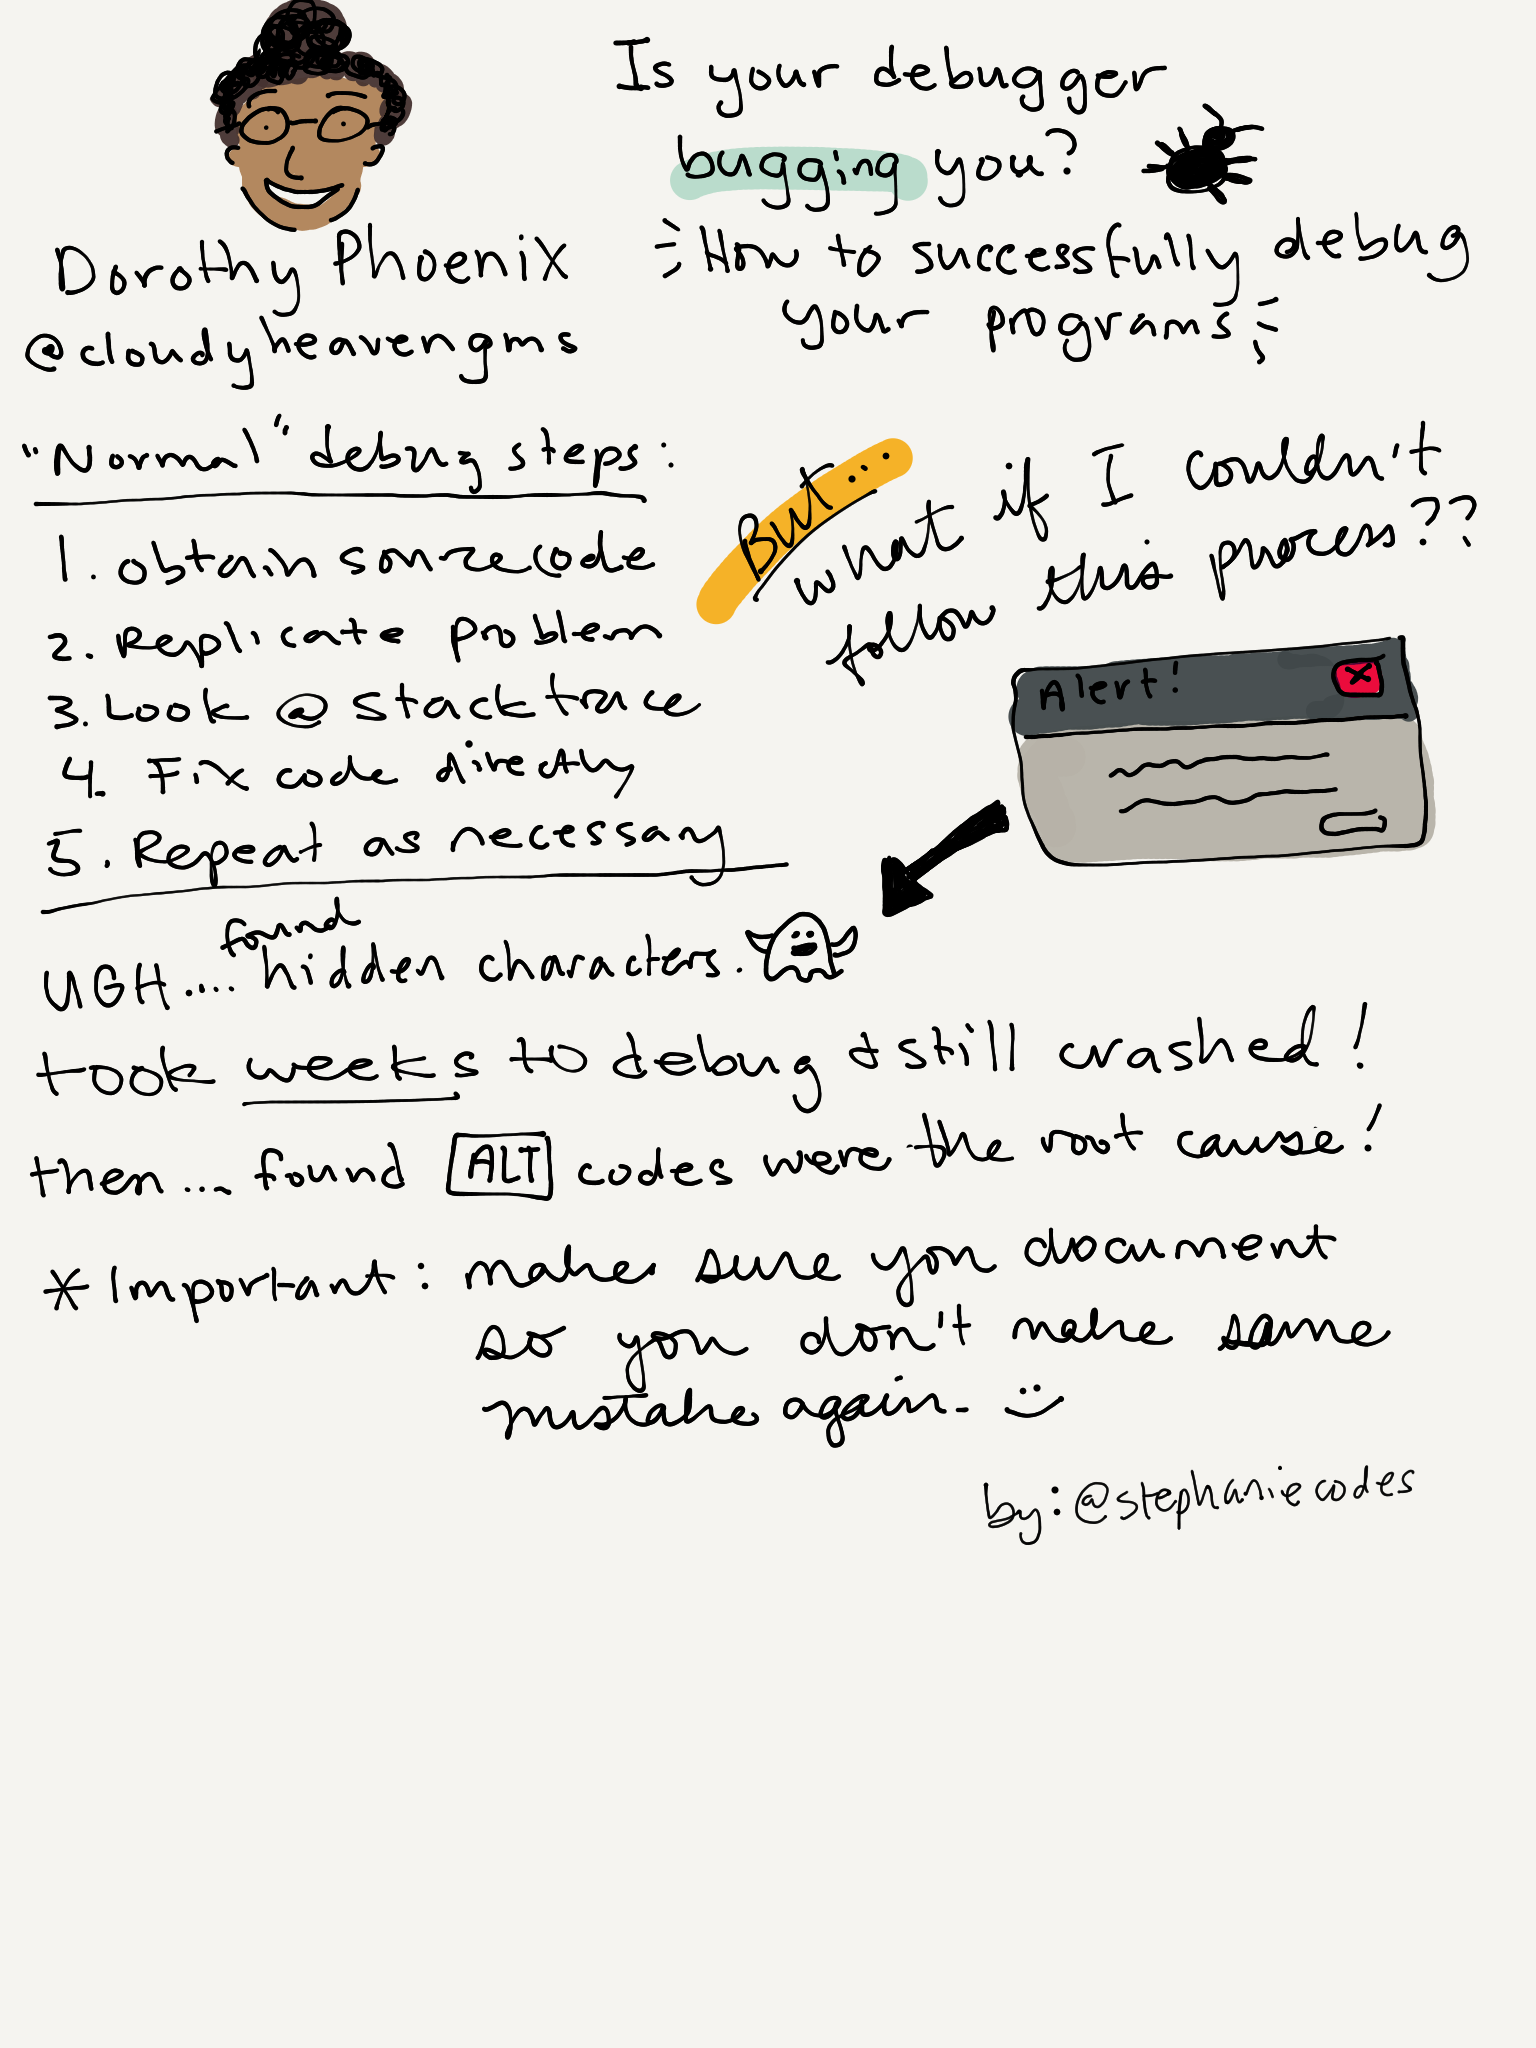 Is your debugger
bugging you?
How to successfully debug
your programs
Dorothy Phoenix
@cloudyheavengms
"Normal" debug steps:
1. obtain sourcecode
2. Replicate problem
3. Look @ stacktrace
4. Fix code directly
5. Repeat as necessary
But...
what if I couldn't
follow this process??
Alert!
X
UGH.... found hidden characters.
took weeks to debug & still crashed!
then... found ALT codes were the root cause!
* Important: make sure you document
so you don't make same
mistake again. :)
by: @stephaniecodes